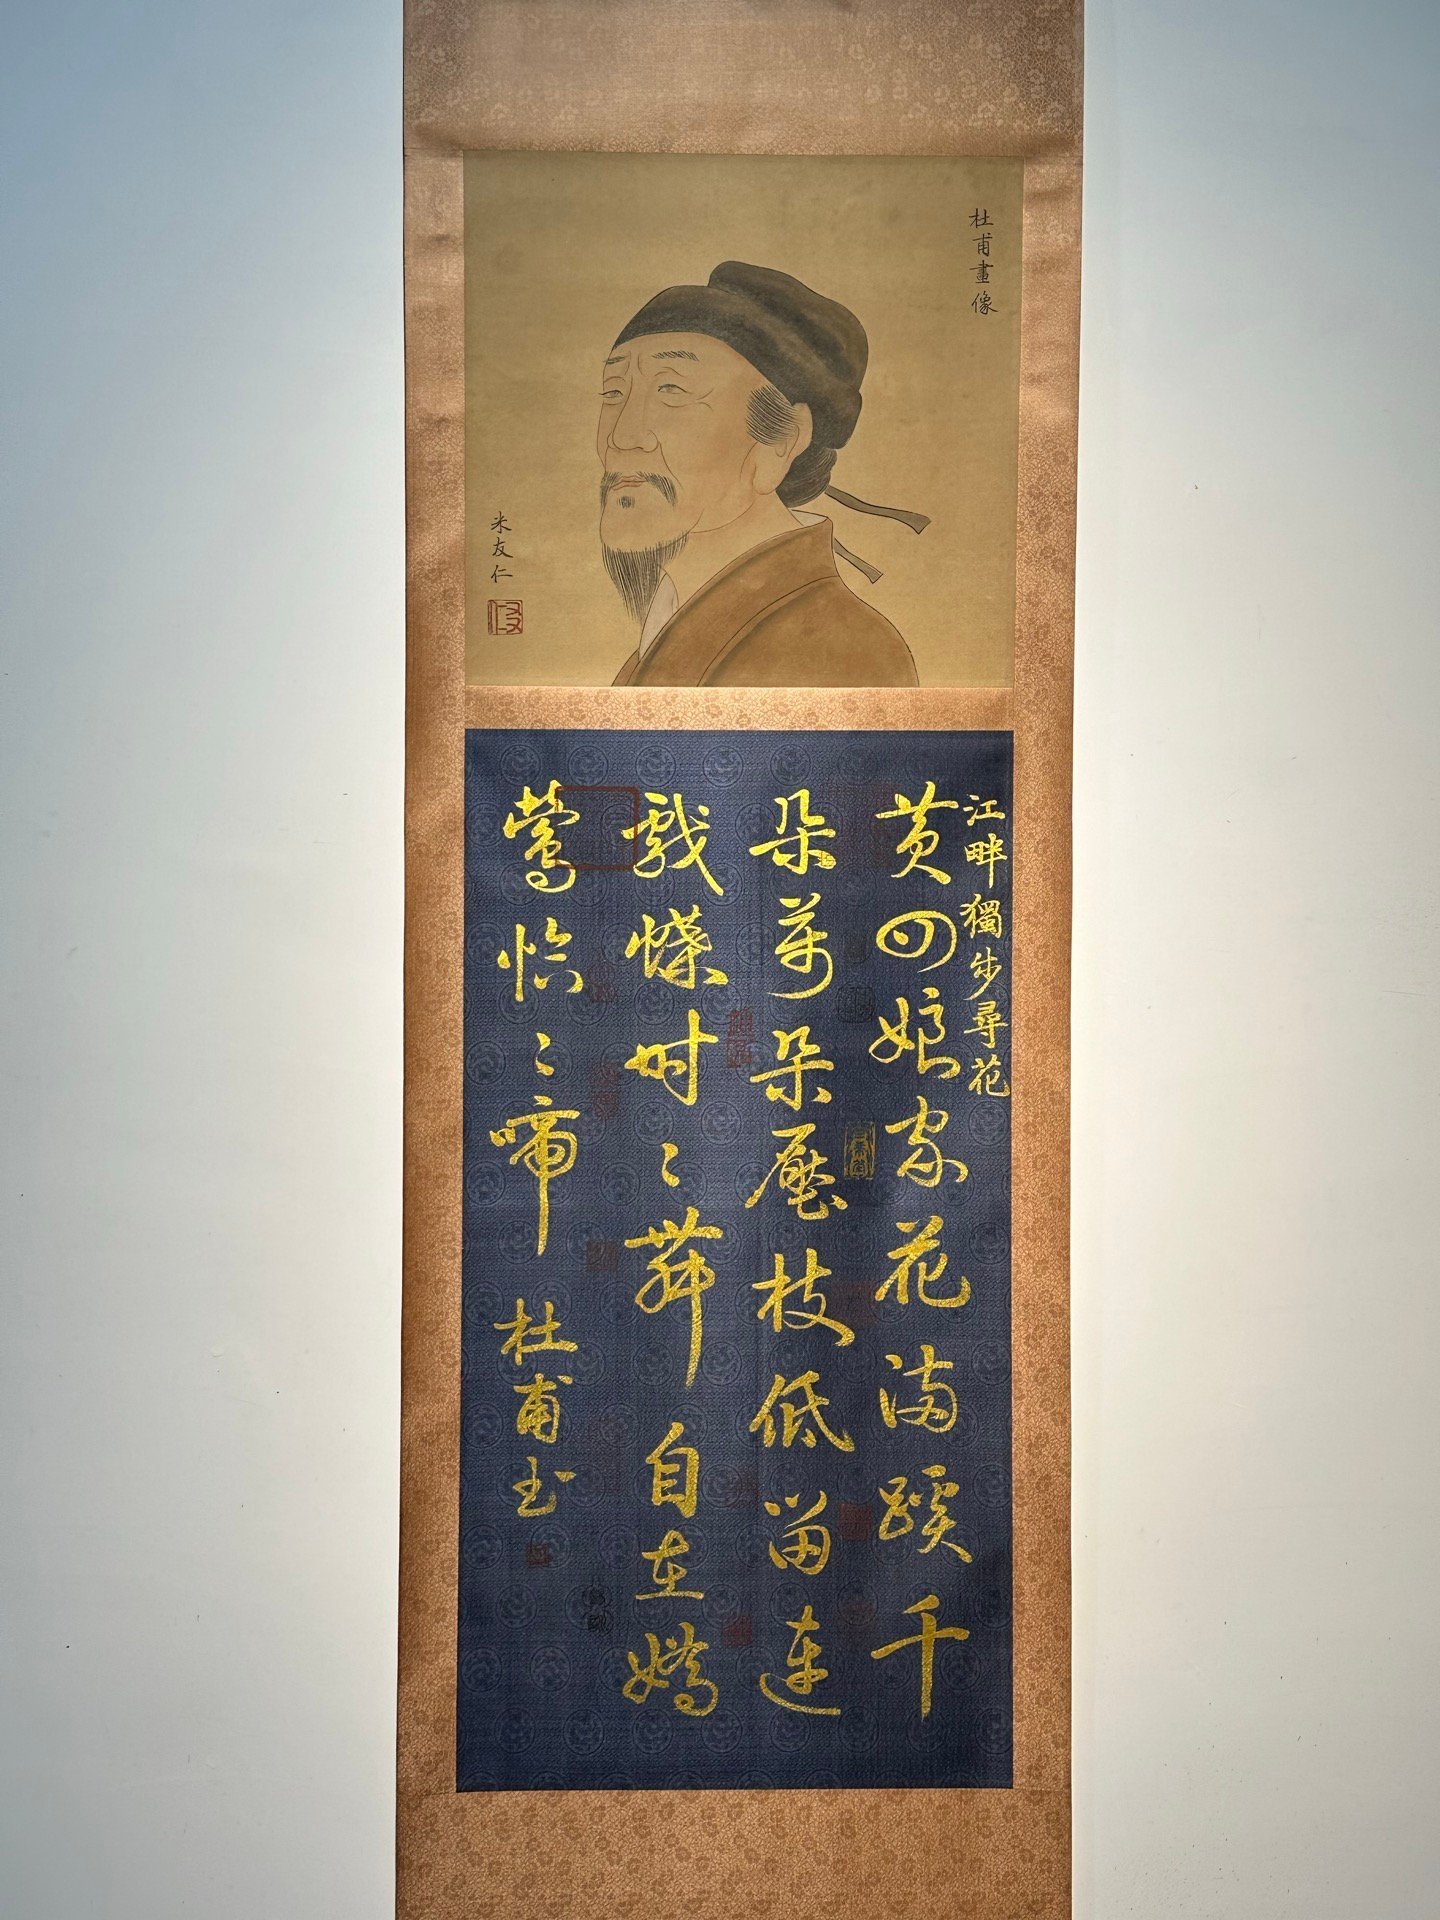 杜甫畫像
米友仁
江畔獨步尋花
黄四娘家花満蹊千
朵萬朵壓枝低留連
戲蝶時〻舞自在嬌
鶯恰〻啼 杜甫書